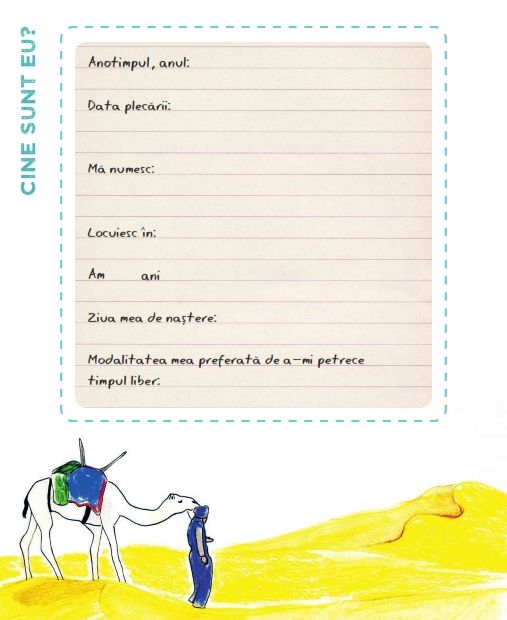 CINE SUNT EU?
Anotimpul, anul:
Data plecării:
Mă numesc:
Locuiesc în:
Am ani
Ziua mea de naștere:
Modalitatea mea preferată de a-mi petrece
timpul liber: